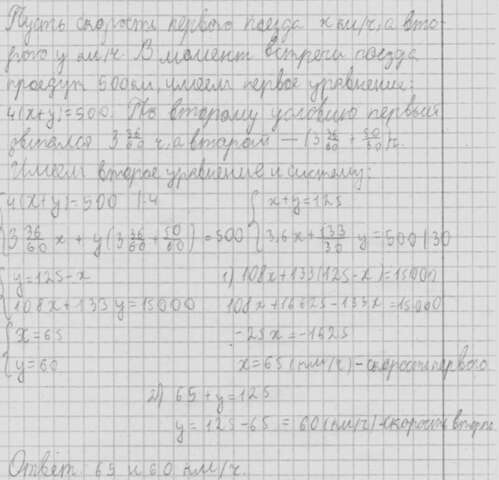 Пусть скорость первого поезда x км/ч, а вто-
рого y км/ч. В момент встречи поезда
пройдут 500 км, имеем первое уравнение:
4(x+y)=500. По второму условию первый
двигался 3 36/60 ч, а второй — (3 36/60 + 50/60) ч.
Имеем второе уравнение и систему:
{ 4(x+y)=500 |:4 { x+y=125
3 36/60 x + y(3 36/60 + 50/60) = 500 3,6x + 133/30 y = 500 |·30
{ y=125-x 1) 108x+133(125-x)=15000
108x+133y=15000 108x+16625-133x=15000
{ x=65 -25x=-1625
y=60 x=65 (км/ч) - скорость первого
2) 65+y=125
y=125-65=60 (км/ч) - скорость второго
Ответ: 65 и 60 км/ч.